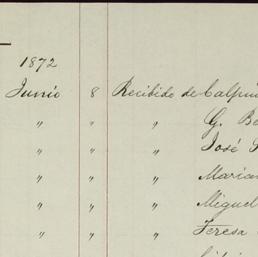 1872
Junio 8 Recibido de Calpu
" " " G. Be
" " " José
" " " Marian
" " " Miguel
" " " Teresa